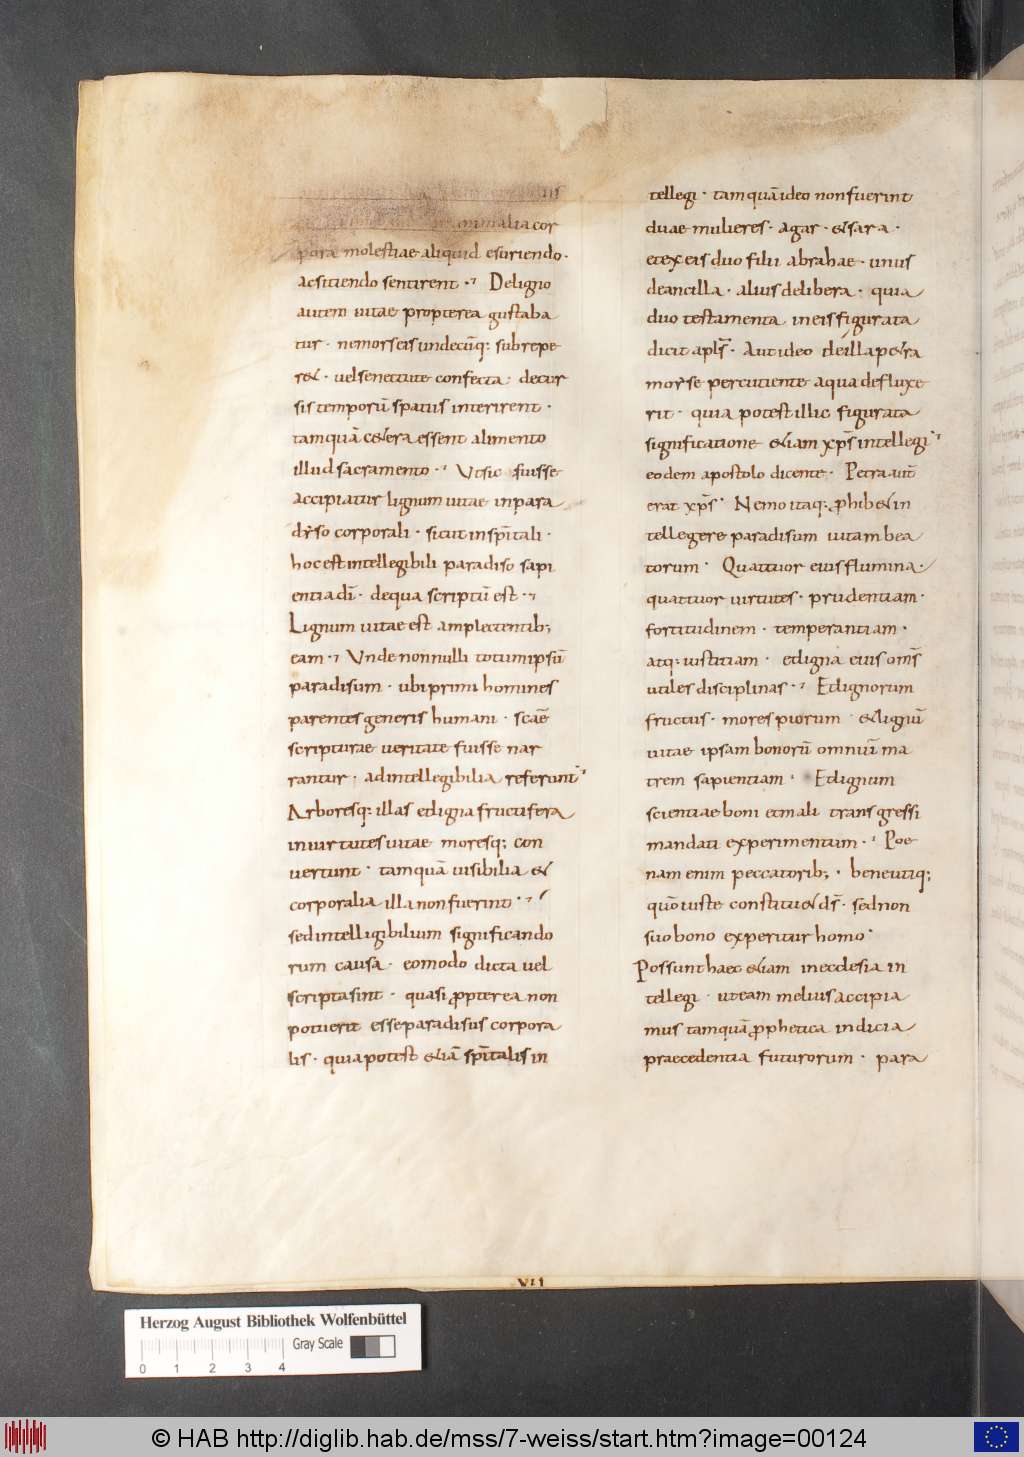 animalia cor
pora molestiae aliquid esuriendo·
ac sitiendo sentirent · De ligno
autem uitae propterea gustaba
tur · ne mors eis undecūq; subrepe
r& · uel senectute confecta · decur
sis temporū spatiis interirent ·
tamquā c&era essent alimento
illud sacramento · Ut sic fuisse
accipiatur lignum uitae in para
dyso corporali · sicut in spītali ·
hoc est intellegibili paradiso sapi
entia dī · de qua scriptū est ·
Lignum uitae est amplectentib;
eam · Unde nonnulli totum ipsū
paradisum · ubi primi homines
parentes generis humani · scāe
scripturae ueritate fuisse nar
rantur · ad intellegibilia referunt
Arboresq; illas et ligna fructifera
in uirtutes uitae moresq; con
uertunt · tamquā uisibilia &
corporalia illa non fuerint ·
sed intelligibilium significando
rum causa · eo modo dicta uel
scripta sint · quasi ꝓpterea non
potuerit esse paradisus corpora
lis · quia potest &iā spītalis in
tellegi · tamquā ideo non fuerint
duae mulieres · agar · & sara ·
et ex eis duo filii abrahae · unus
de ancilla · alius de libera · quia
duo testamenta in eis figurata
dicit apls̄ · Aut ideo de illa p&ra
moyse percutiente aqua defluxe
rit · quia potest illic figurata
significatione &iam xp̄s intellegi
eodem apostolo dicente · Petra aut̄
erat xp̄s · Nemo itaq; ꝓhib& in
tellegere paradisum uitam bea
torum · Quattuor eius flumina ·
quattuor uirtutes · prudentiam ·
fortitudinem · temperantiam ·
atq; iustitiam · et ligna eius om̄s
utiles disciplinas · Et lignorum
fructus · mores piorum · & lignū
uitae ipsam bonorū omniū ma
trem sapientiam · Et lignum
scientiae boni et mali transgressi
mandati experimentum · Poe
nam enim peccatorib; · bene utiq;
quō iuste constitu& ds̄ · sed non
suo bono experitur homo ·
Possunt haec &iam in ecclesia in
tellegi · ut eam melius accipia
mus tamquā ꝓphetica indicia
praecedentia futurorum · para
VII
Herzog August Bibliothek Wolfenbüttel
Gray Scale
0 1 2 3 4
© HAB http://diglib.hab.de/mss/7-weiss/start.htm?image=00124